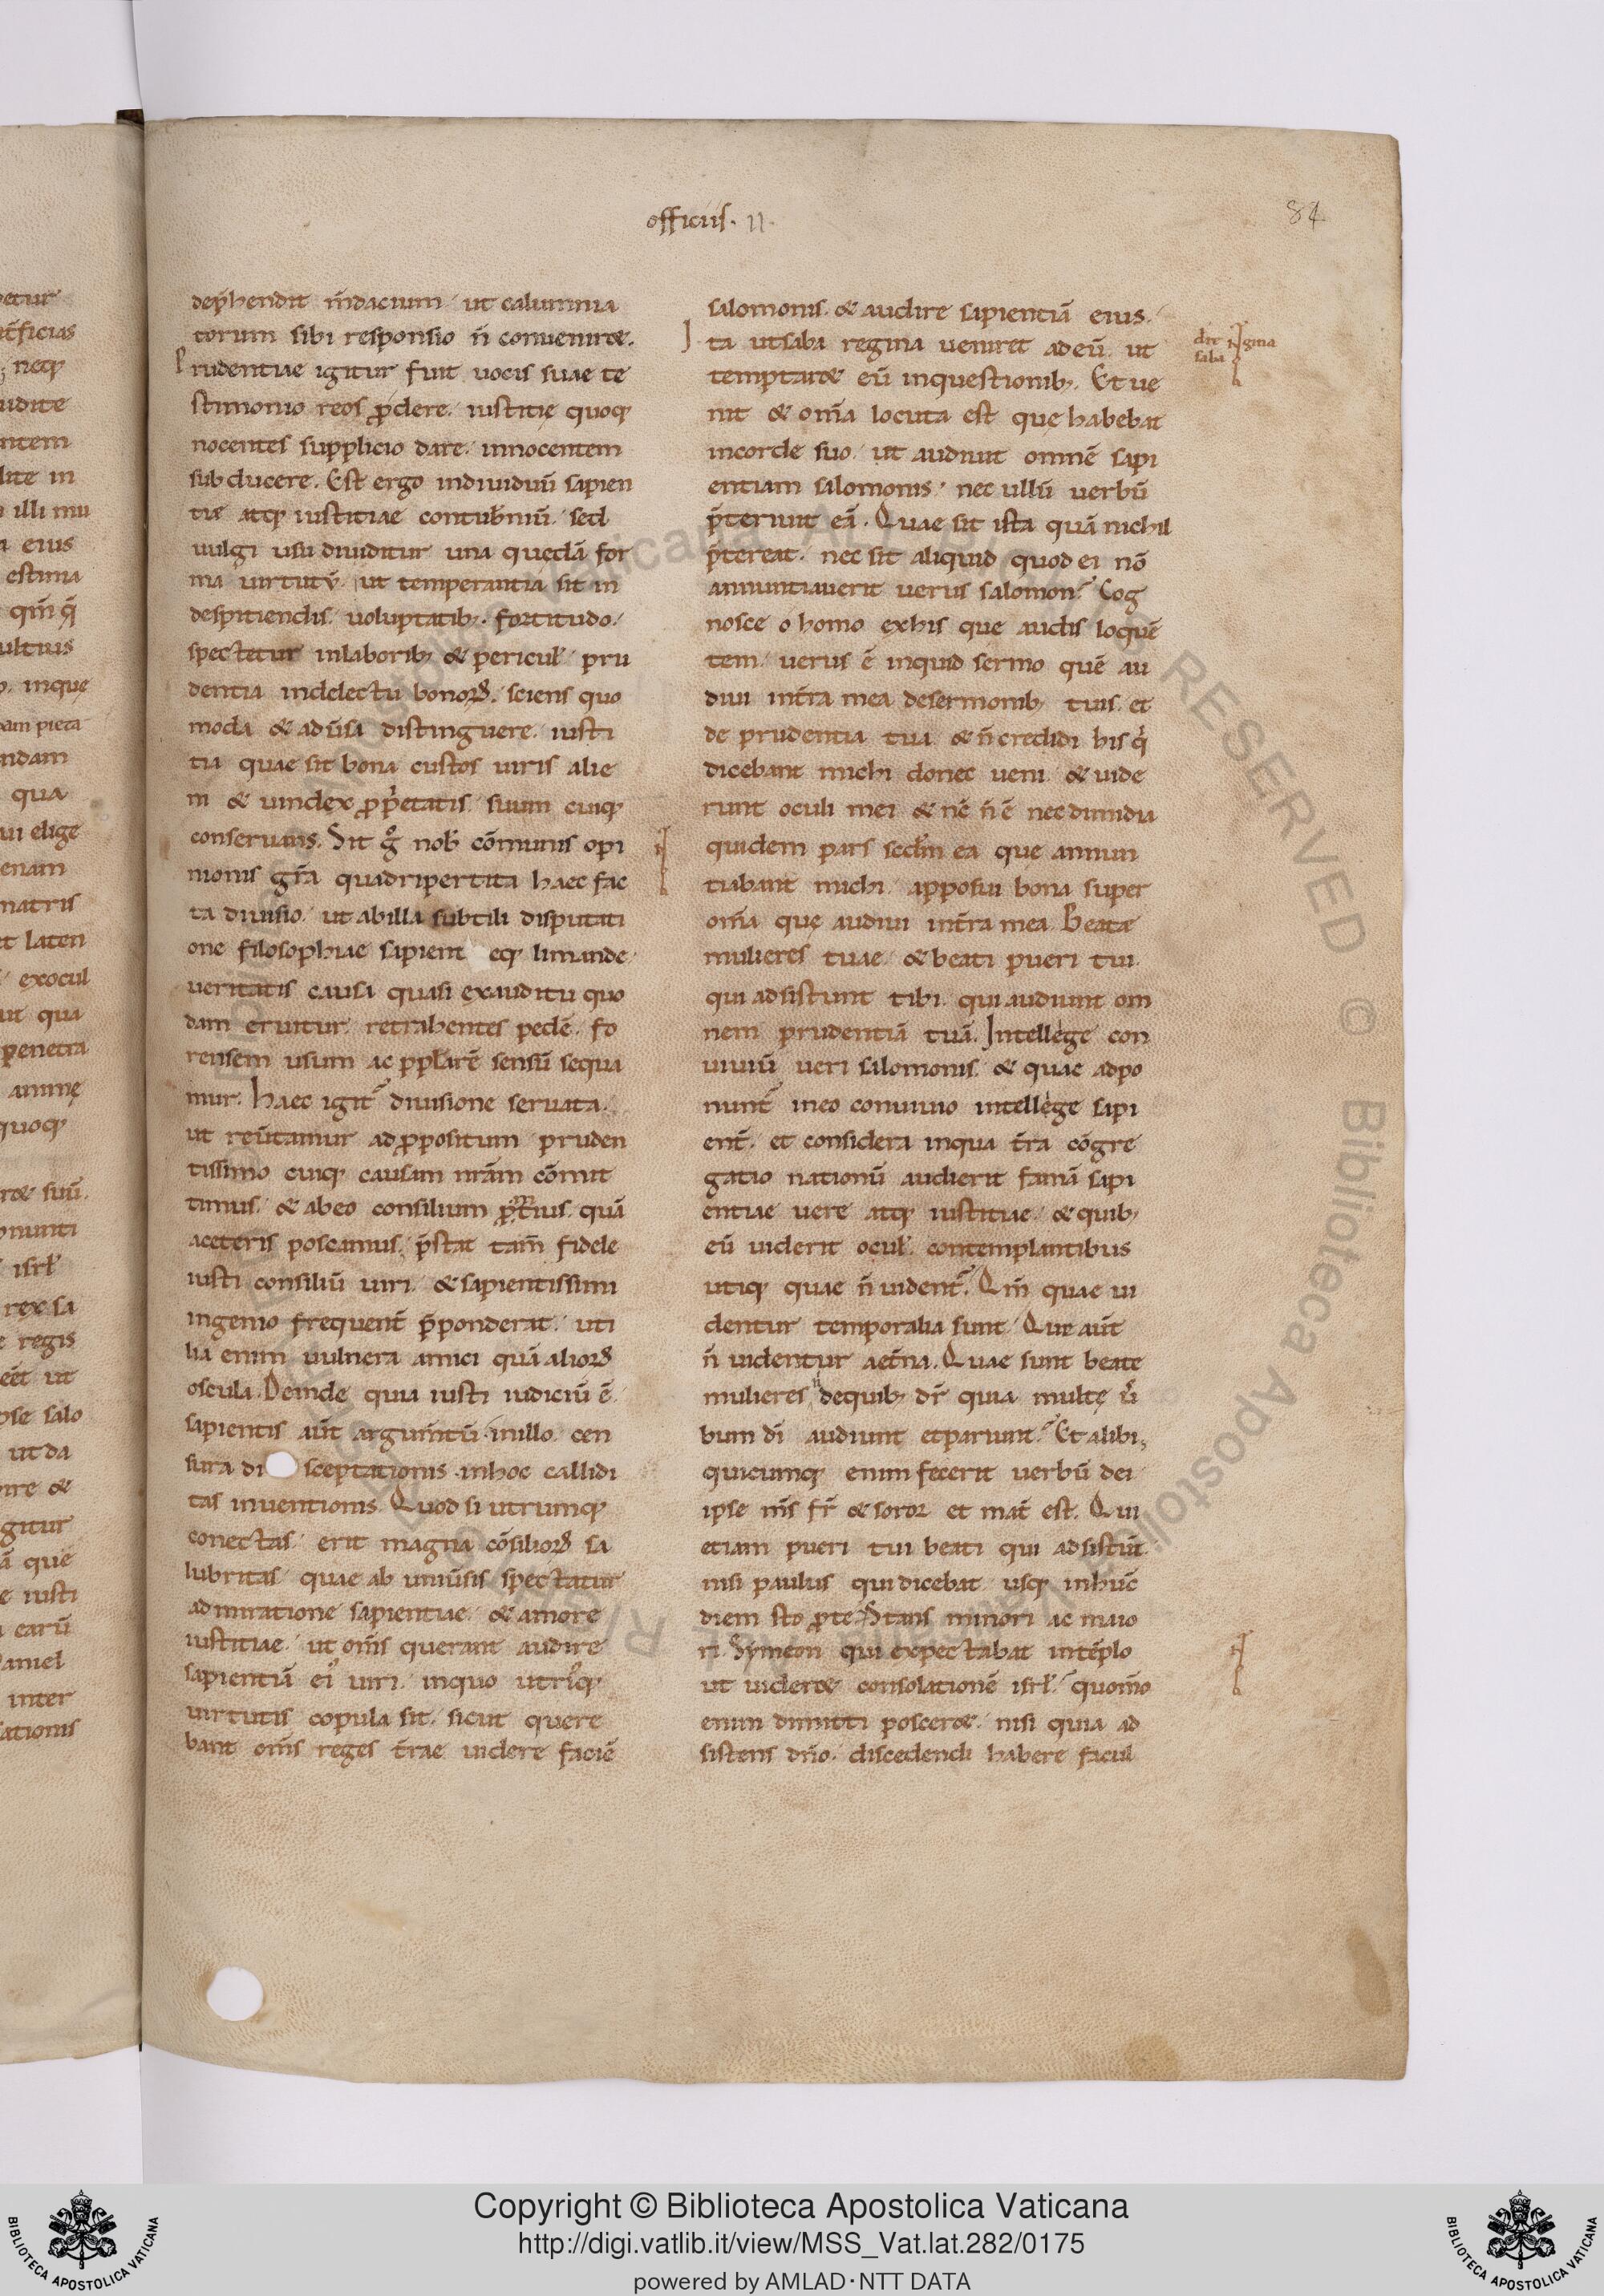 officiis · II ·
84
dep̄hendit m̄dacium · ut calumnia
torum sibi responsio n̄ conveniret.
Prudentiae igitur fuit vocis suae te
stimonio reos ꝓdere · iustitię quoq;
nocentes supplicio dare · innocentem
subducere. Est ergo individuū sapien
tię atq; iustitiae contub̄niū · sed
vulgi usu dividitur una quędā for
ma virtutū · ut temperantia sit in
despitiendis voluptatib; · fortitudo ·
spectetur inlaborib; & pericul̄ · pru
dentia indelectu bonoꝝ · sciens quo
moda & adūsa distinguere · iusti
tia quae sit bona custos iuris alie
ni & vindex ꝓp̄etatis · suum cuiq;
conservans. Sit gͦ nob̄ cōmunis opi
nionis gr̄a quadripertita haec fac
ta divisio · ut abilla subtili disputati
one filosophiae sapient eq; limande ·
veritatis causa quasi exauditu quo
dam eruitur · retrahentes pedē · fo
rensem usum ac ppl̄arē sensū sequa
mur. Haec igit̄ divisione servata ·
ut rev̄tamur adꝓpositum · pruden
tissimo cuiq; causam nr̄am cōmit
timus · & abeo consilium ꝓ̄tius quā
aceteris poscamus. p̄stat tam̄ fidele
iusti consiliū viri · & sapientissimi
ingenio frequent̄ p̄ponderat · uti
lia enim vulnera amici quā alioꝝ
oscula. Deinde quia iusti iudiciū ē ·
sapientis aūt argum̄tū · inillo cen
sura di sceptationis · inhoc callidi
tas inventionis. Quod si utrumq;
conectas · erit magna cōsilioꝝ sa
lubritas quae ab univ̄sis spectatur
admiratione sapientiae & amore
iustitiae · ut om̄s querant audire
sapientiā ei᾽ viri · inquo utriᷤq;
virtutis copula sit · sicut quere
bant om̄s reges t̄rae videre faciē
salomonis · & audire sapientiā eius ·
Ita utsaba regina veniret adeū · ut
dn̄t regina
saba
temptaret eū inquestionib; · Et ve
nit & om̄a locuta est que habebat
incorde suo · ut audivit omnē sapi
entiam salomonis · nec ullū verbū
p̄terivit eā. Quae sit ista quā nichil
p̄tereat · nec sit aliquid quod ei nō
annuntiaverit verus salomon? Cog
nosce o homo exhis que audis loquē
tem · verus ē inquid sermo quē au
divi int̄ra mea desermonib; tuis · et
de prudentia tua & n̄ credidi his q̄
dicebant michi donec veni · & vide
runt oculi mei · & nc̄ n̄ ē nec dimidia
quidem pars secdm̄ ea que annun
tiabant michi · apposui bona super
om̄a quę audivi int̄ra mea. Beatæ
mulieres tuae · & beati pueri tui
qui adsistunt tibi · qui audiunt om
nem prudentiā tuā. Intellege con
viviū veri salomonis · & quae adpo
nunt̄ ineo convivio intellege sapi
ent̄ · et considera inqua t̄ra cōgre
gatio nationū audierit famā sapi
entiae vere atq; iustitiae · & quib;
eū viderit ocul̄ · contemplantibus
utiq; quae n̄ vident̄. Qm̄ quae vi
dentur temporalia sunt. Que aūt
n̄ videntur aet̄na. Quae sunt beate
mulieres n̄ dequib; dr̄ quia multę v̄
bum dī audiunt etpariunt? Et alibi ·
quicumq; enim fecerit verbū dei
ipse m̄s fr̄ & soror et mat̄ est. Qui
etiam pueri tui beati qui adsistūt
nisi paulus qui dicebat usq; inhūc
diem sto ꝓte. Stans minori ac maio
ri. Symeon qui expectabat intēplo
ut videret consolationē isrl̄. quom̄o
enim dimitti posceret · nisi quia ad
sistens dn̄o · discedendi habere facul
Copyright © Biblioteca Apostolica Vaticana
http://digi.vatlib.it/view/MSS_Vat.lat.282/0175
powered by AMLAD·NTT DATA
BIBLIOTECA APOSTOLICA VATICANA
BIBLIOTECA APOSTOLICA VATICANA